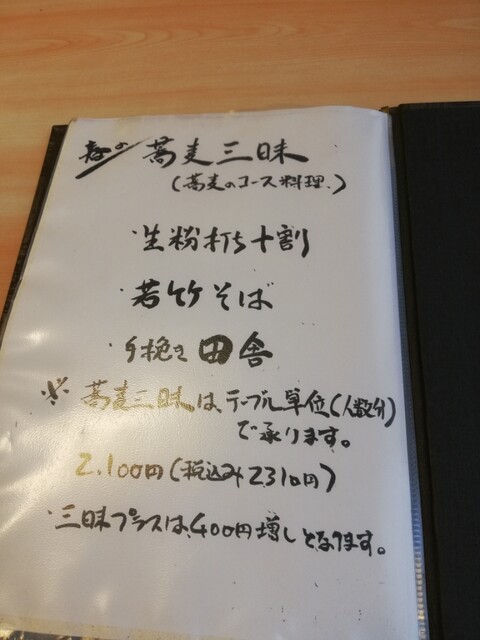 春の 蕎麦三昧
(蕎麦のコース料理.)
・生粉打ち十割
・若竹そば
・手挽き田舎
※ 蕎麦三昧は、テーブル単位(人数分)
で承ります。
2.100円(税込み2310円)
・三昧プラスは、400円増しとなります。